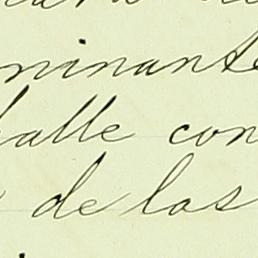 minante
halle con
de los